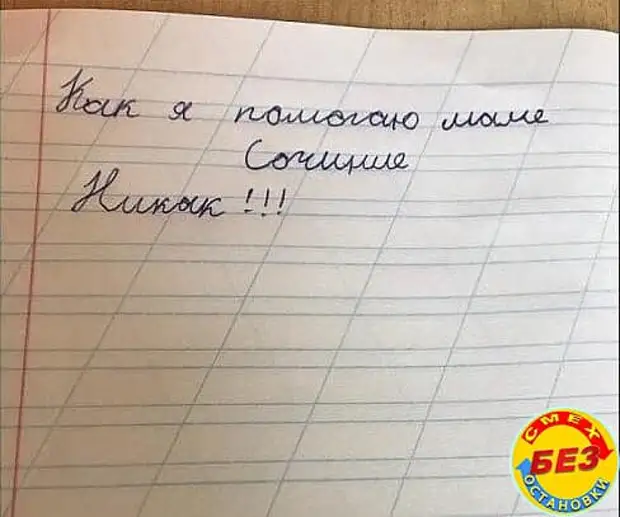 Как я помогаю маме
Сочиние
Никак !!!
СМЕХ
БЕЗ
ОСТАНОВКИ